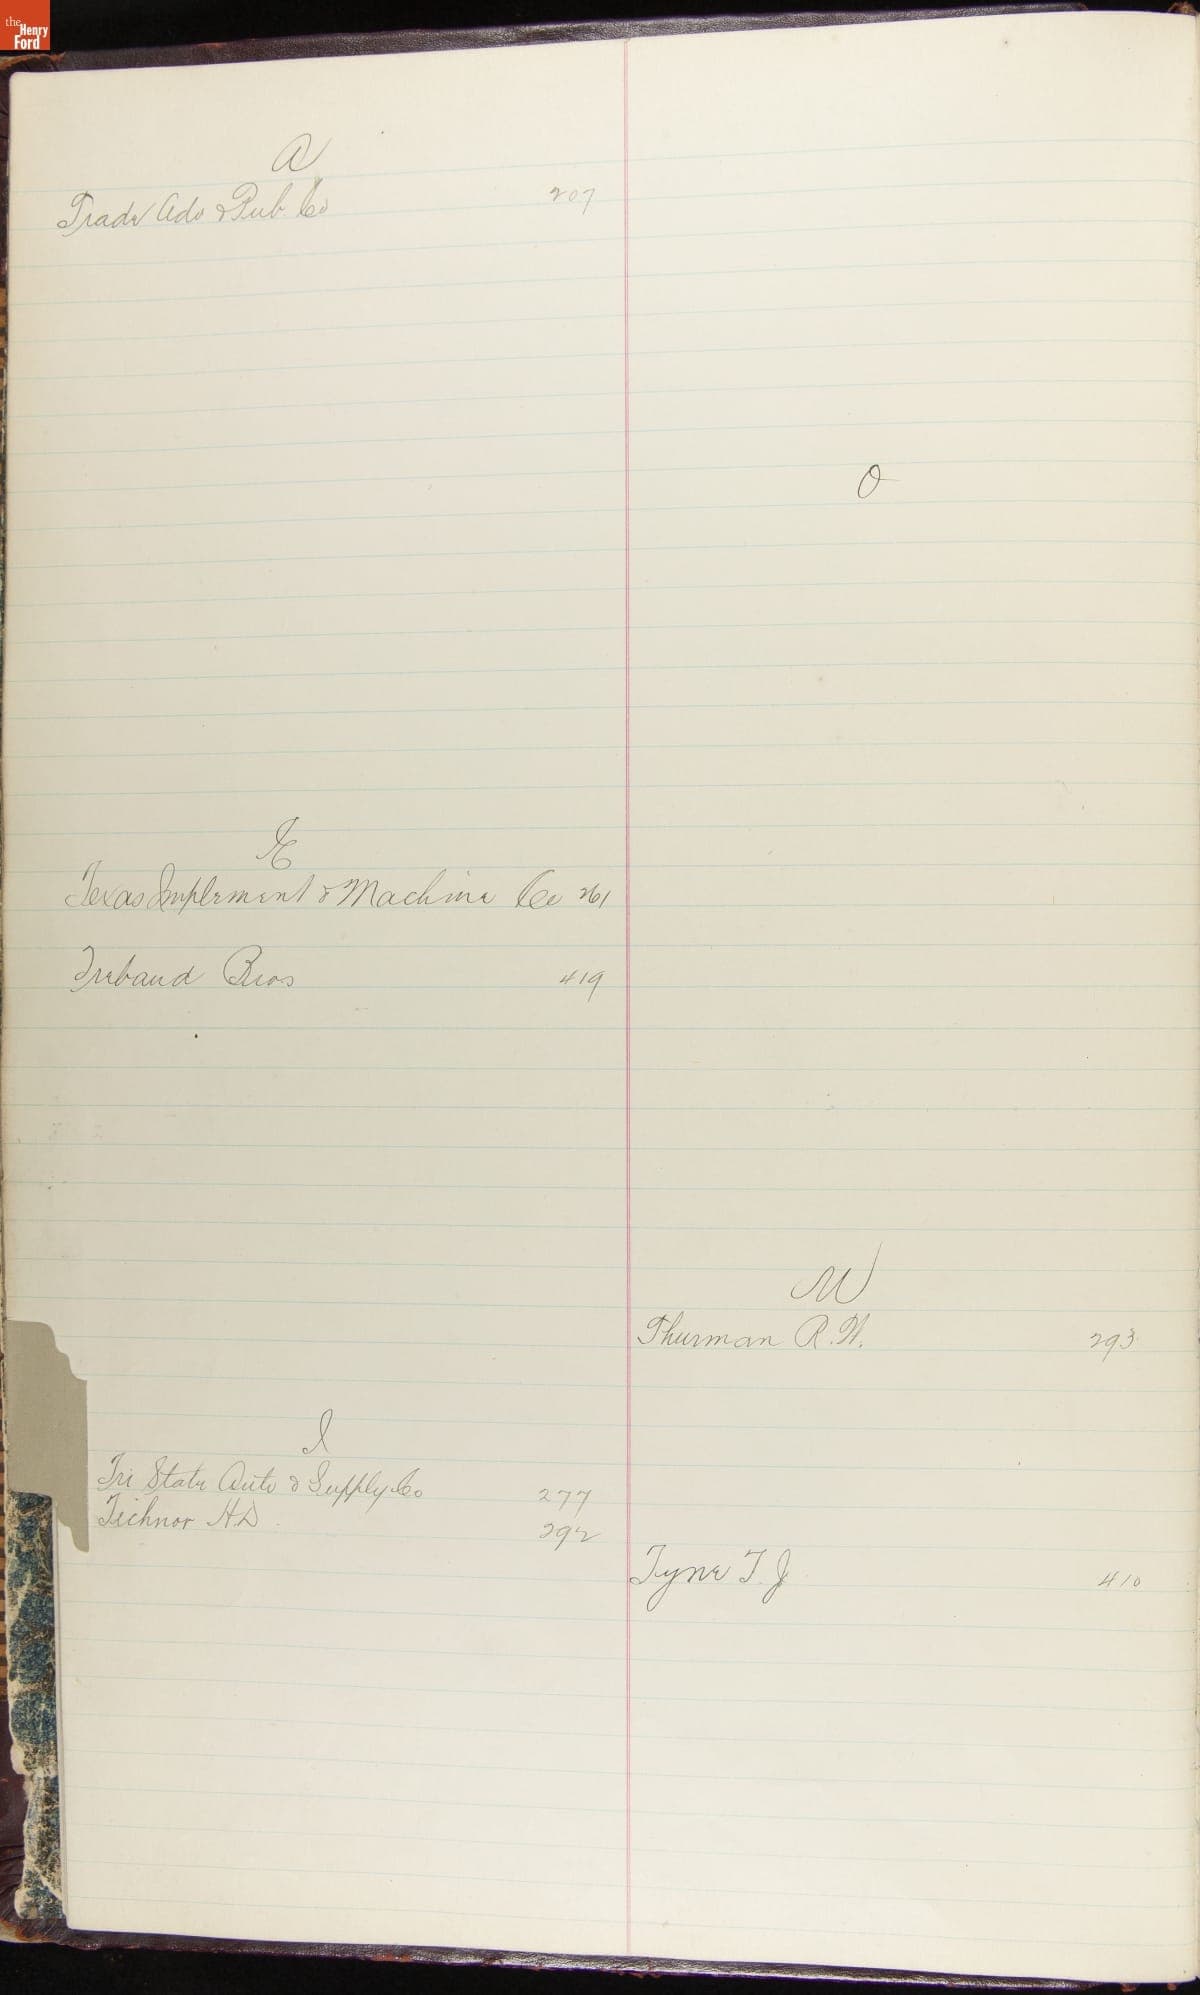 the
Henry
Ford
A
Trade Adv & Pub Co 207
E
Texas Implement & Machine Co 261
Trebaud Bros 419
I
Tri State Auto & Supply Co 277
Tichnor H.D. 292
O
U
Thurman R.H. 293
Tyne T. J 410